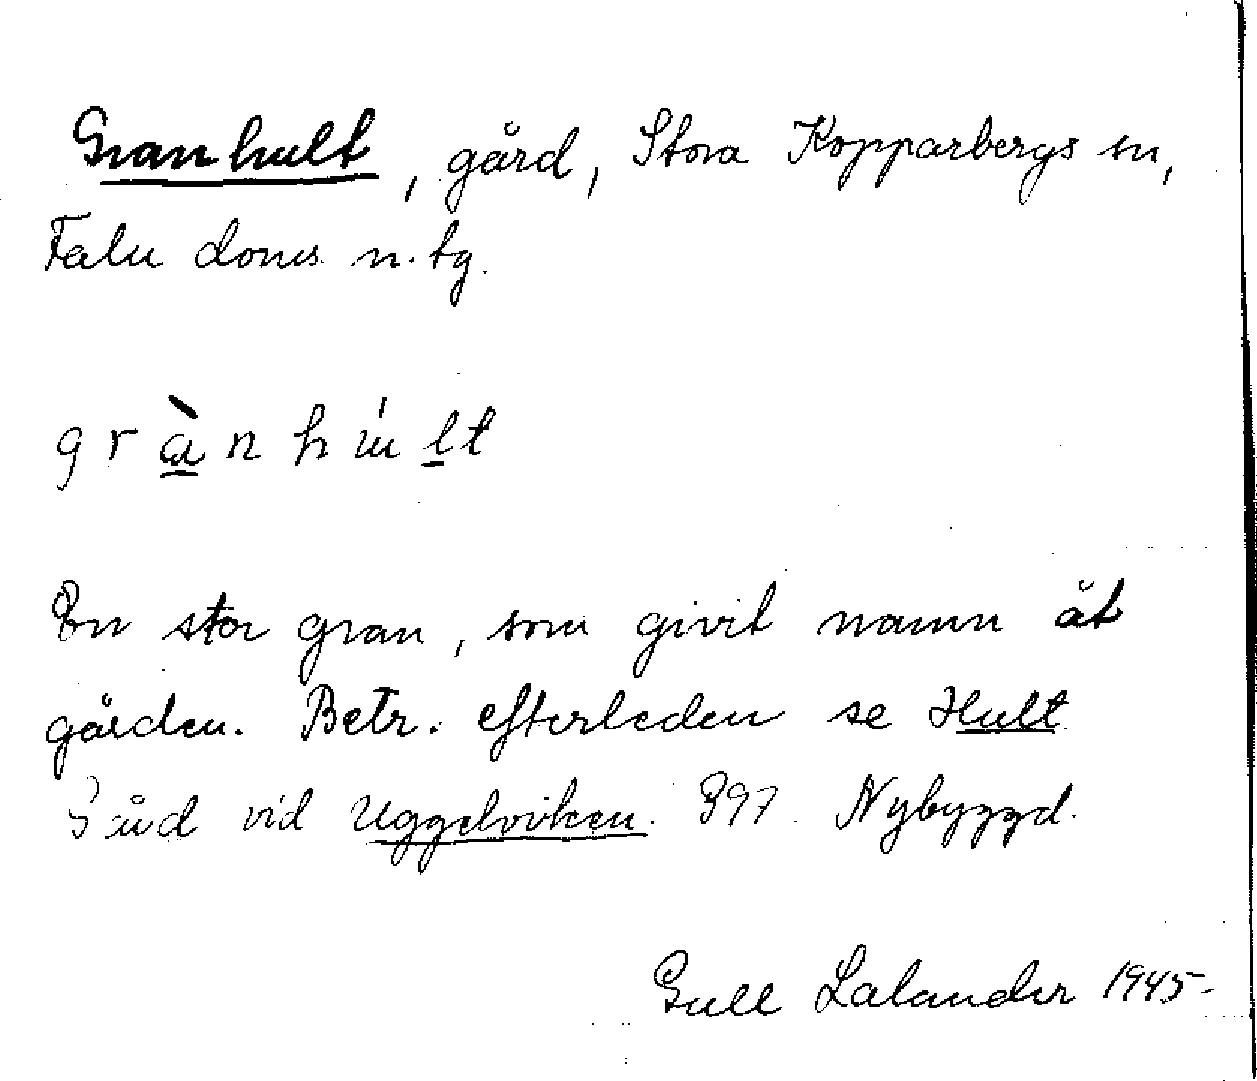 Granhult, gård, Stora Kopparbergs sn,
Falu doms n. tg.
grànhúlt
En stor gran, som givit namn åt
gården. Betr. efterleden se Hult
Gård vid Uggelviken. 897. Nybyggd.
Gull Lalander 1945